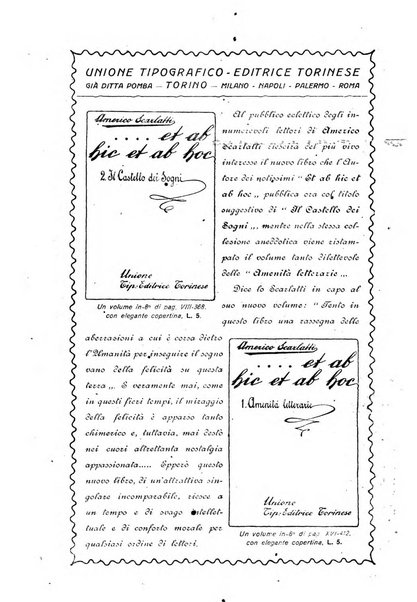 UNIONE TIPOGRAFICO - EDITRICE TORINESE
GIÀ DITTA POMBA — TORINO — MILANO - NAPOLI - PALERMO - ROMA
Americo Scarlatti
.... et ab
hic et ab hoc
2. Il Castello dei Sogni
Unione
Tip.-Editrice Torinese
Un volume in-8º di pag. VIII-368,
con elegante copertina, L. 5.
Al pubblico eclettico degli in-
numerevoli lettori di Americo
Scarlatti riescirà del più vivo
interesse il nuovo libro che l'Au-
tore dei notissimi “ Et ab hic et
ab hoc „ pubblica ora col titolo
suggestivo di “ Il Castello dei
Sogni „, mentre nella stessa col-
lesione aneddotica viene ristam-
pato il volume tanto dilettevole
delle “ Amenità letterarie „.
Dice lo Scarlatti in capo al
suo nuovo volume: “ Tento in
questo libro una rassegna delle
aberrazioni a cui è corsa dietro
l'Umanità per inseguire il sogno
vano della felicità su questa
terra „. E veramente mai, come
in questi fieri tempi, il miraggio
della felicità è apparso tanto
chimerico e, tuttavia, mai destò
nei cuori altrettanta nostalgia
appassionata.... Epperò questo
nuovo libro, di un'attrattiva sin-
golare incomparabile, riesce a
un tempo e di svago intellet-
tuale e di conforto morale per
qualsiasi ordine di lettori.
Americo Scarlatti
.... et ab
hic et ab hoc
1. Amenità letterarie
Unione
Tip.-Editrice Torinese
Un volume in-8º di pag. XVI-412,
con elegante copertina, L. 5.